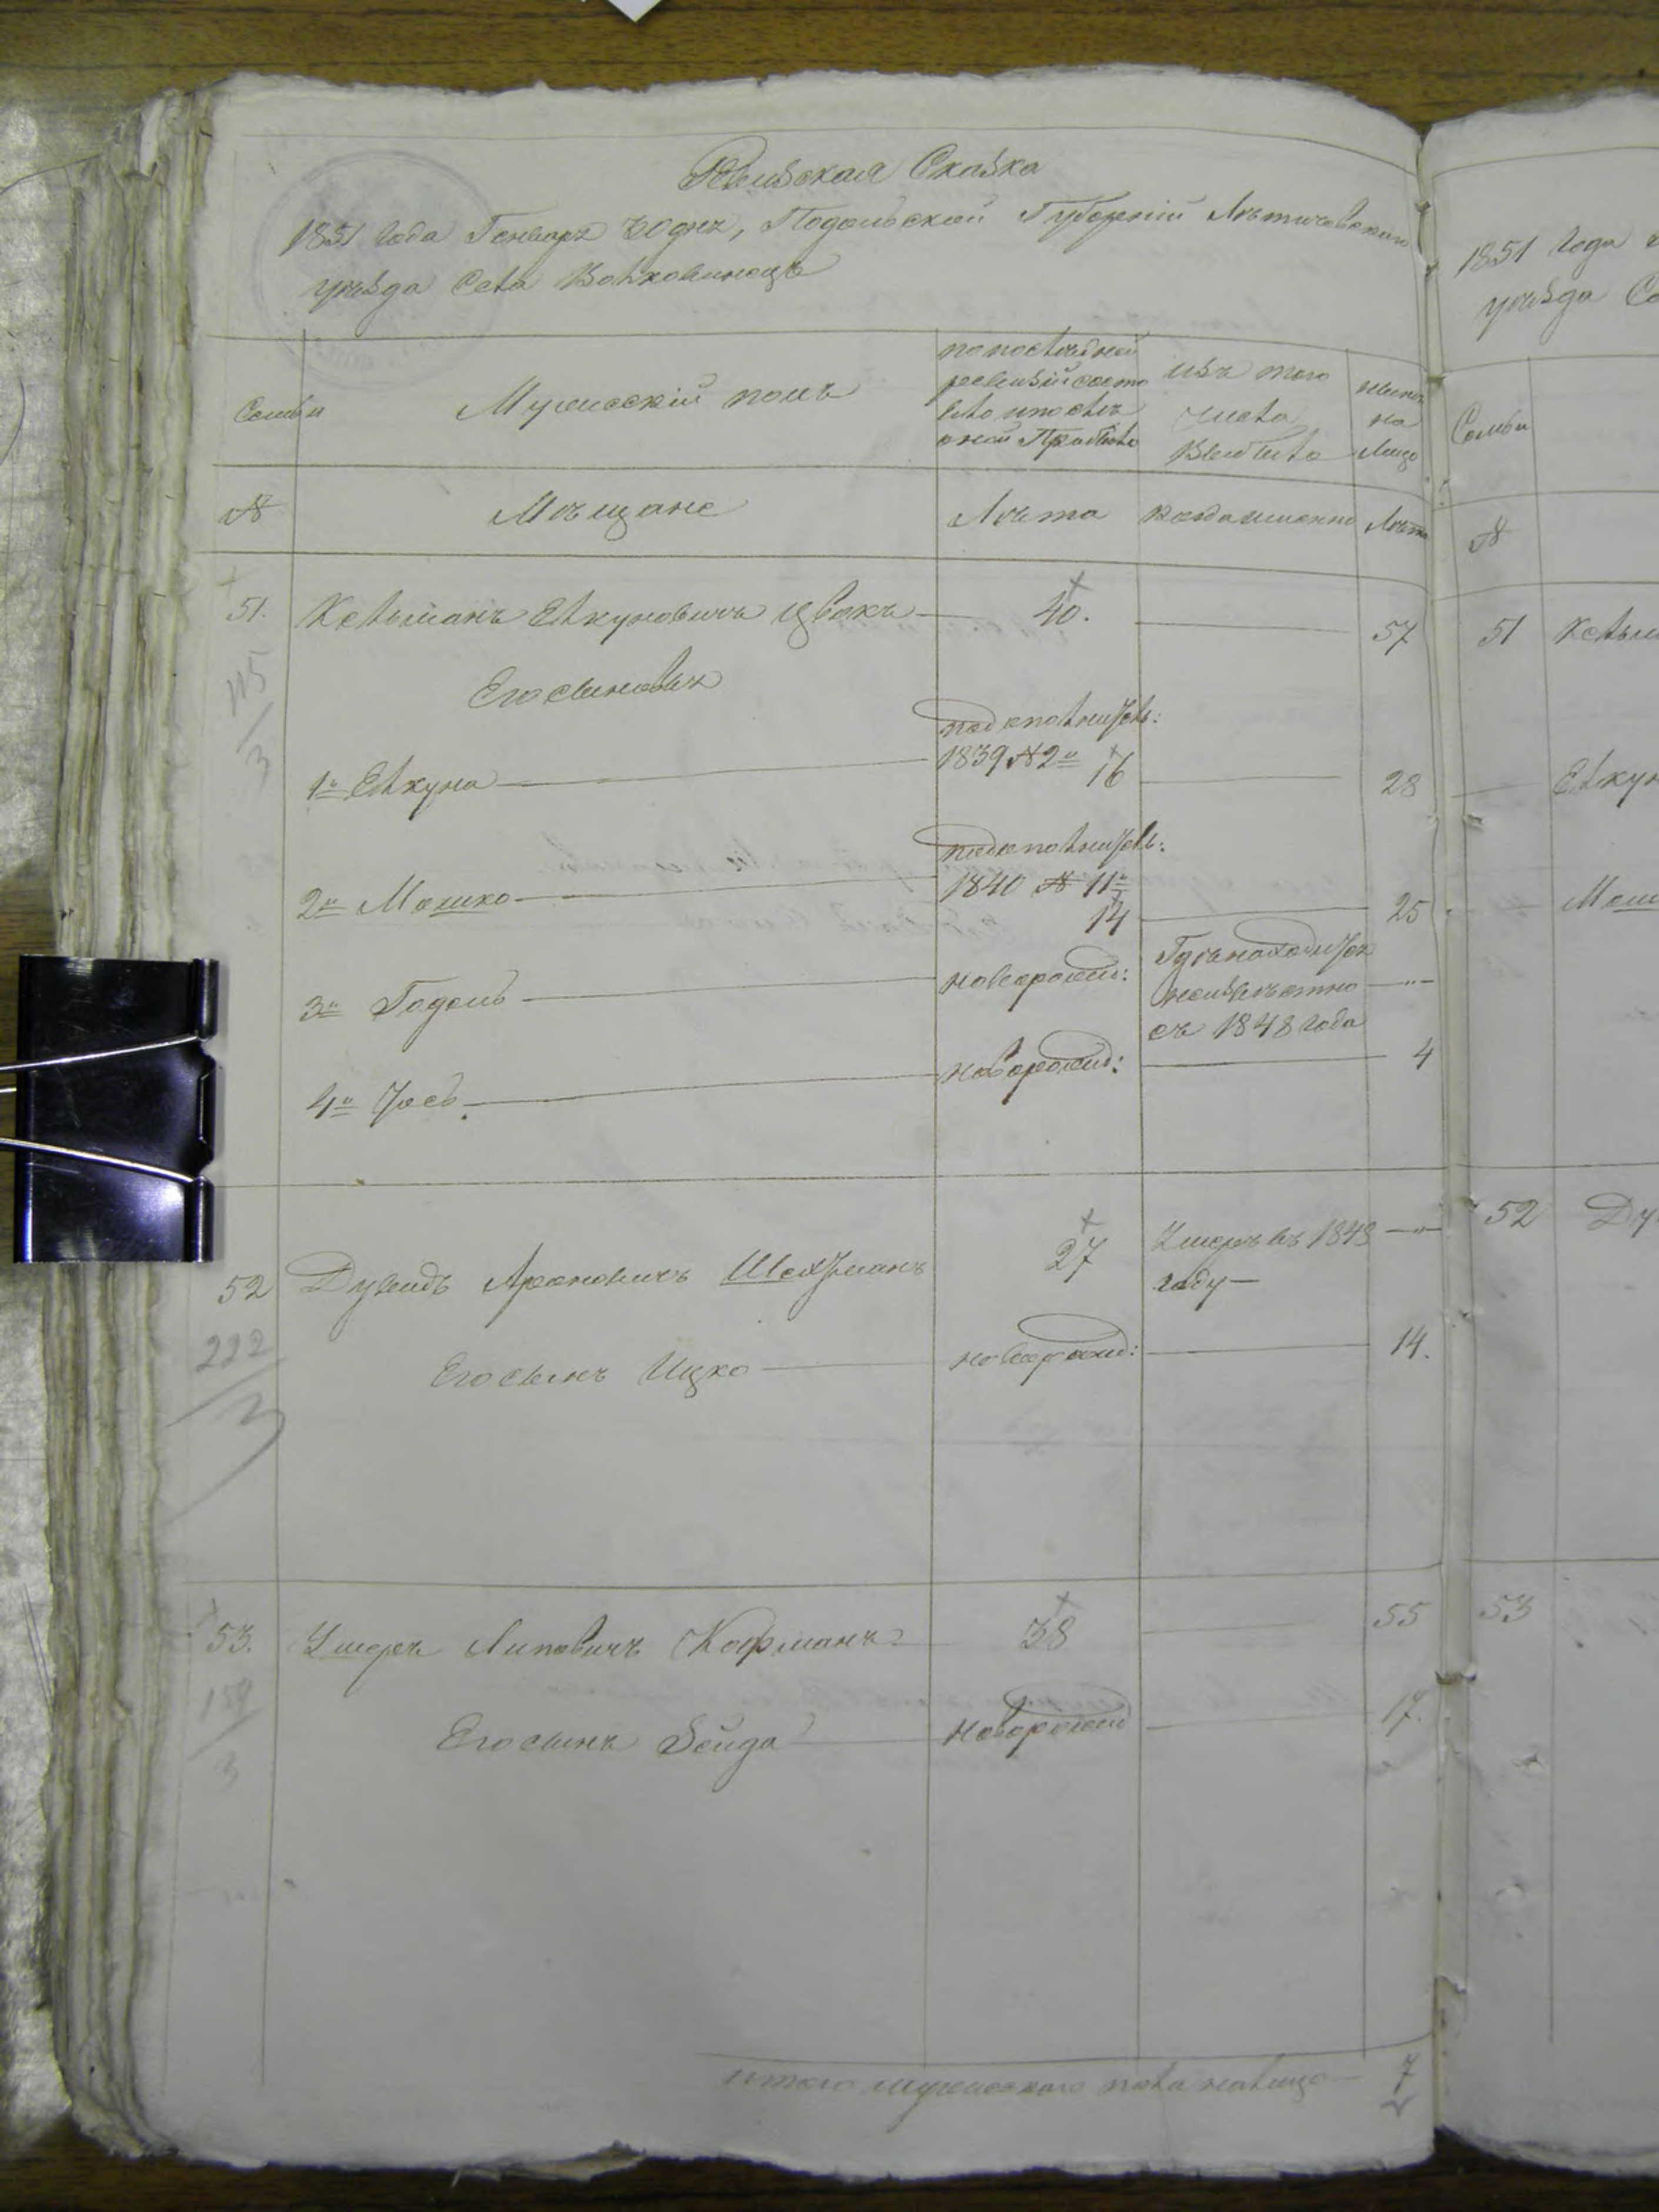 Ревизская Сказка
1851 года Генваря 30 дня, Подольской Губерніи Лѣтичевскаго
уѣзда Села Волковинецъ
Семьи
Мужескій полъ
по послѣдней
ревизіи состо
яло и послѣ
оной Прибыло
изъ того
числа
Выбыло
нынѣ
на
Лицо
№
Мѣщане
Лѣта
когда именно
Лѣта
51.
Кельманъ Елкуновичъ Цвокъ
40.
57
115
3
Его сыновья
1й Елкуна
по дополнител:
1839 № 2й 16
28
2й Мошко
по дополнител:
1840 № 11й
14
25
3й Годель
новорожд:
Гдѣ находится
неизвѣстно
съ 1848 года
4й Іось
новорожд:
4
52
Дувидъ Ароновичъ Шехтманъ
27
Умеръ въ 1848
году
222
3
Его сынъ Ицко
новорожд:
14.
53.
Умеръ Липовичъ Кофманъ
38
55
159
3
Его сынъ Зейда
новорожд
17.
итого мужескаго пола налицо
7
1851 года
уѣзда Се
Семьи
№
51
Кельм
Елкун
Мош
52
Ду
53